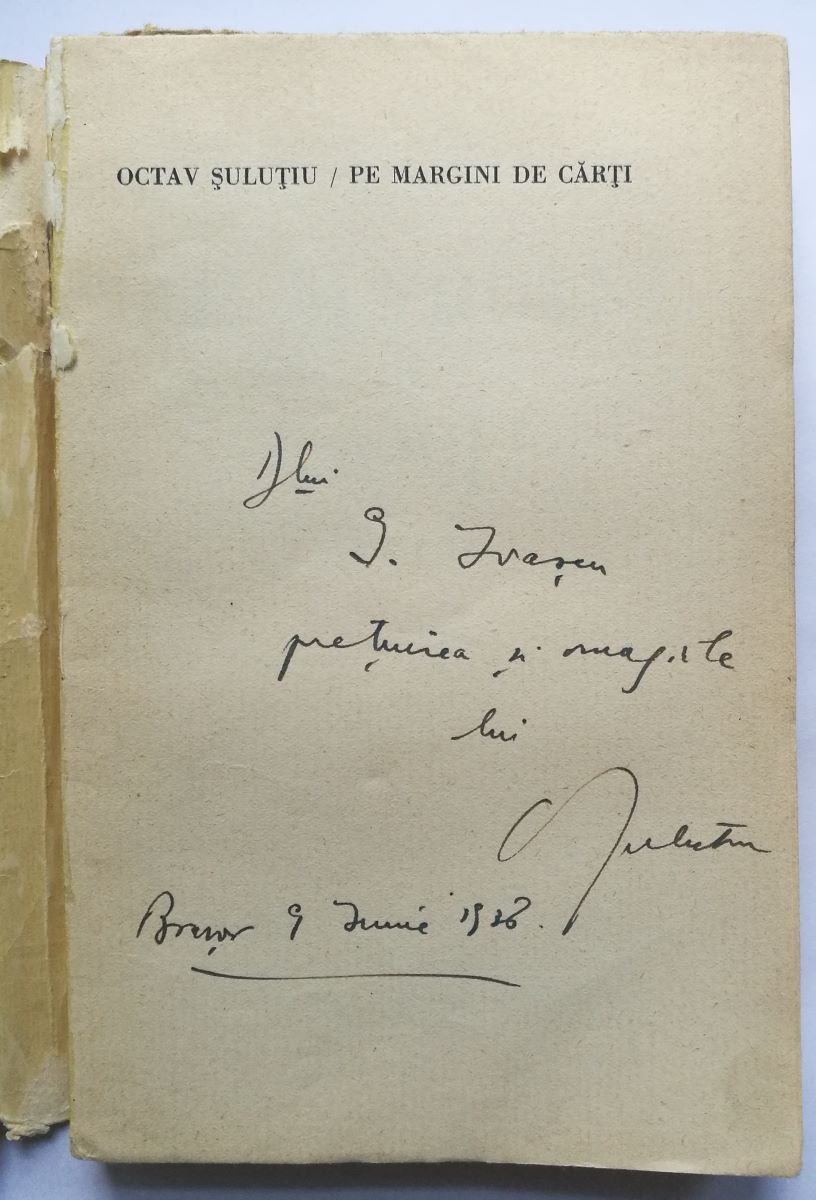 OCTAV ŞULUŢIU / PE MARGINI DE CĂRŢI
Dlui
G. Ivaşcu
preţuirea şi omagiile
lui
OSuluţiu
Braşov 9 Iunie 1938.